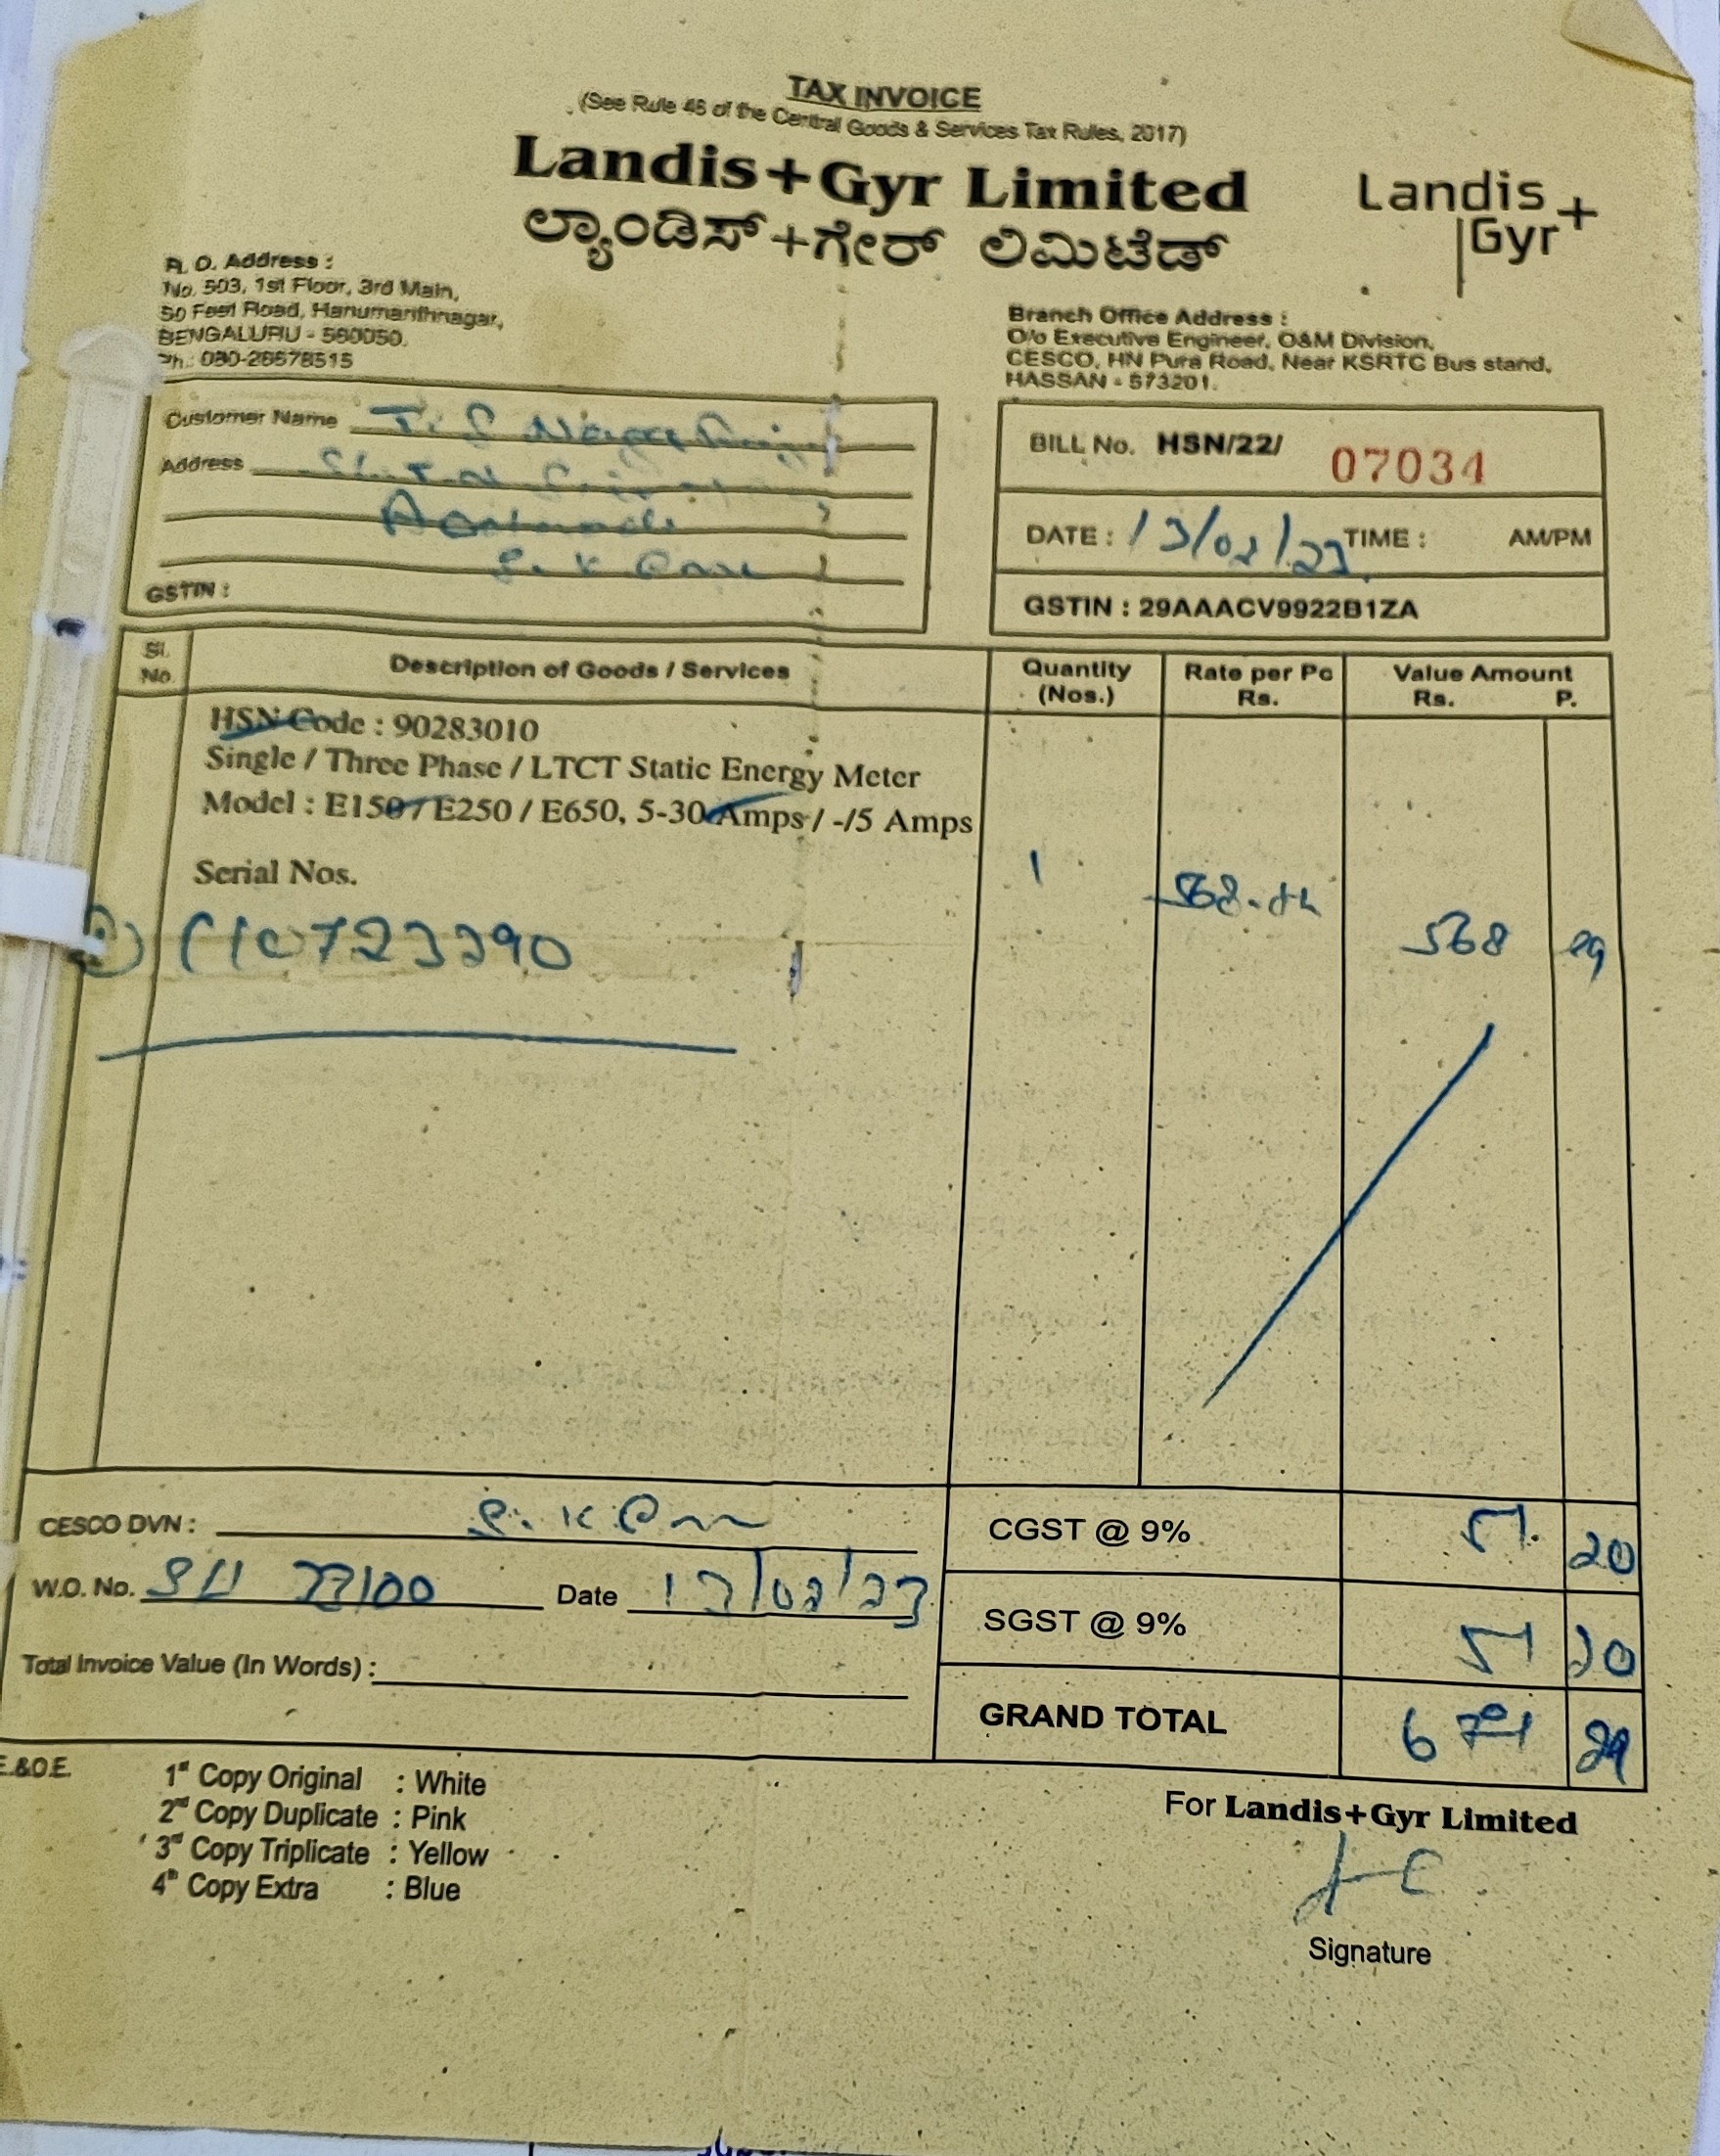 TAX INVOICE
(See Rule 46 of the Central Goods & Services Tax Rules, 2017)
Landis+Gyr Limited
ಲ್ಯಾಂಡಿಸ್+ಗೇರ್ ಲಿಮಿಟೆಡ್
Landis
Gyr+
R. O. Address :
No. 503, 1st Floor, 3rd Main,
50 Feet Road, Hanumanthnagar,
BENGALURU - 560050.
Ph.: 080-26678515
Branch Office Address :
O/o Executive Engineer, O&M Division,
CESCO, HN Pura Road, Near KSRTC Bus stand,
HASSAN - 573201.
Customer Name T. S
Address
GSTIN :
BILL No. HSN/22/ 07034
DATE : 13/02/23 TIME : AM/PM
GSTIN : 29AAACV9922B1ZA
Sl. No. Description of Goods / Services Quantity (Nos.) Rate per Pc Rs. Value Amount Rs. P.
HSN Code : 90283010
Single / Three Phase / LTCT Static Energy Meter
Model : E150 / E250 / E650, 5-30 Amps / -/5 Amps
Serial Nos.
1 568 89
CESCO DVN :
CGST @ 9% 51. 20
W.O. No. Date 13/02/23
SGST @ 9% 51 20
Total Invoice Value (In Words) :
GRAND TOTAL 671 29
E.&O.E.
1st Copy Original : White
2nd Copy Duplicate : Pink
3rd Copy Triplicate : Yellow
4th Copy Extra : Blue
For Landis+Gyr Limited
Signature